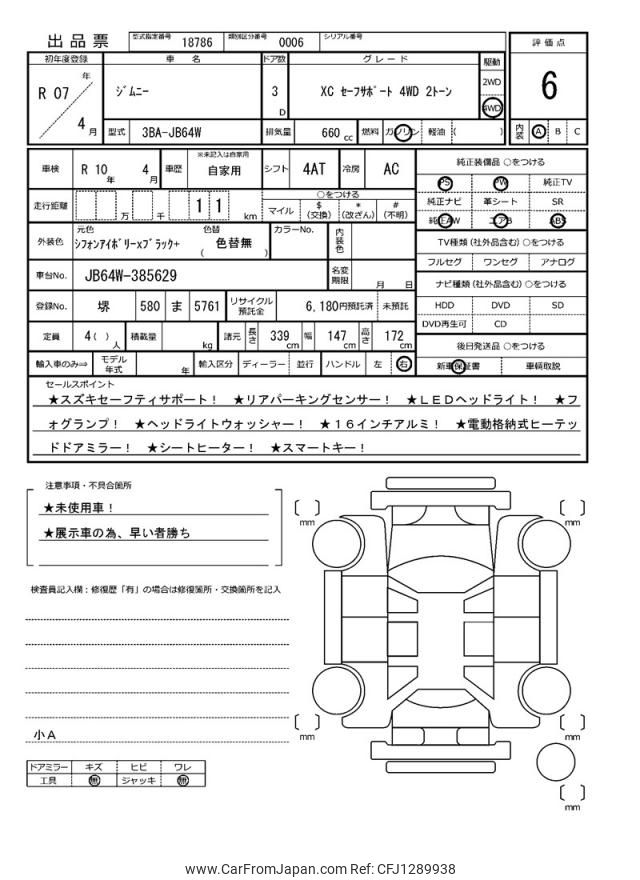 出品票 型式指定番号 18786 類別区分番号 0006 シリアル番号
評価点
6
内装 A B C
初年度登録 車名 ドア数 グレード 駆動
R 07 年 4 月 ジムニー 3 D XC セーフサポート 4WD 2トーン 2WD 4WD
型式 3BA-JB64W 排気量 660 cc 燃料 ガソリン 軽油 ( )
車検 R 10 年 4 月 車歴 ※未記入は自家用 自家用 シフト 4AT 冷房 AC
走行距離 万 千 1 1 km ○をつける
マイル $ (交換) * (改ざん) # (不明)
外装色 元色 シフォンアイボリーxブラック+ 色替 ( 色替無 ) カラーNo. 内装色
車台No. JB64W-385629 名変期限 月 日
登録No. 堺 580 ま 5761 リサイクル預託金 6,180円預託済 未預託
定員 4 ( ) 人 積載量 kg 諸元 長さ 339 cm 幅 147 cm 高さ 172 cm
輸入車のみ⇒ モデル年式 年 輸入区分 ディーラー 並行 ハンドル 左 右
純正装備品 ○をつける
PS PW 純正TV
純正ナビ 革シート SR
純正AW エアB ABS
TV種類 (社外品含む) ○をつける
フルセグ ワンセグ アナログ
ナビ種類 (社外品含む) ○をつける
HDD DVD SD
DVD再生可 CD
後日発送品 ○をつける
新車保証書 車輌取説
セールスポイント
★スズキセーフティサポート! ★リアパーキングセンサー! ★LEDヘッドライト! ★フ
ォグランプ! ★ヘッドライトウォッシャー! ★16インチアルミ! ★電動格納式ヒーテッ
ドドアミラー! ★シートヒーター! ★スマートキー!
注意事項・不具合箇所
★未使用車!
★展示車の為、早い者勝ち
検査員記入欄:修復歴「有」の場合は修復箇所・交換箇所を記入
小A
ドアミラー キズ ヒビ ワレ
工具 無 ジャッキ 無
mm
mm
mm
mm
mm
www.CarFromJapan.com Ref: CFJ1289938